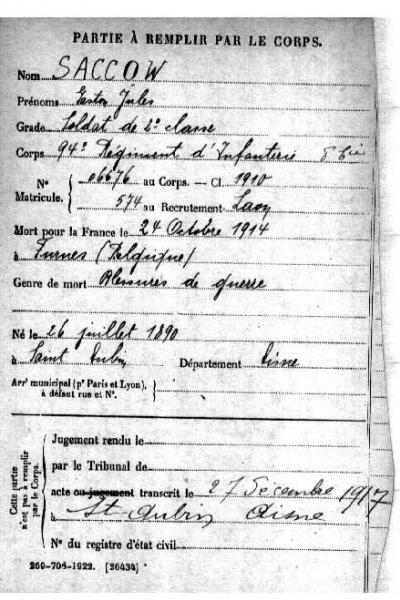 PARTIE À REMPLIR PAR LE CORPS.
Nom SACCOW
Prénoms Gaston Jules
Grade Soldat de 2e classe
Corps 94e Régiment d'Infanterie 8 Cie
No 06676 au Corps. — Cl. 1910
Matricule. 574 au Recrutement Laon
Mort pour la France le 24 Octobre 1914
à Furnes (Belgique)
Genre de mort Blessures de guerre
Né le 26 juillet 1890
à Saint Aubin Département Aisne
Arrt municipal (pr Paris et Lyon),
à défaut rue et No.
Cette partie
n'est pas à remplir
par le Corps.
Jugement rendu le
par le Tribunal de
acte ou jugement transcrit le 27 Décembre 1917
à St-Aubin Aisne
No du registre d'état civil
260-708-1922. [26434]